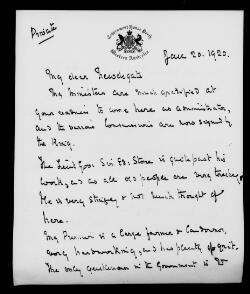 Private
Government House, Perth
Western Australia
Jan 20. 1920.
My dear Newdegate
My Ministers are much opposed at
your to come here as administrator,
and the various are now signed by
the King.
The Lieut Govr Sir Ed: Stone is quite past his
work, and as all old people are very touchy.
He is very stingy & not much thought of
here.
My Premier is a large farmer &
very hardworking, and has plenty of grit.
The only gentleman in the Government is